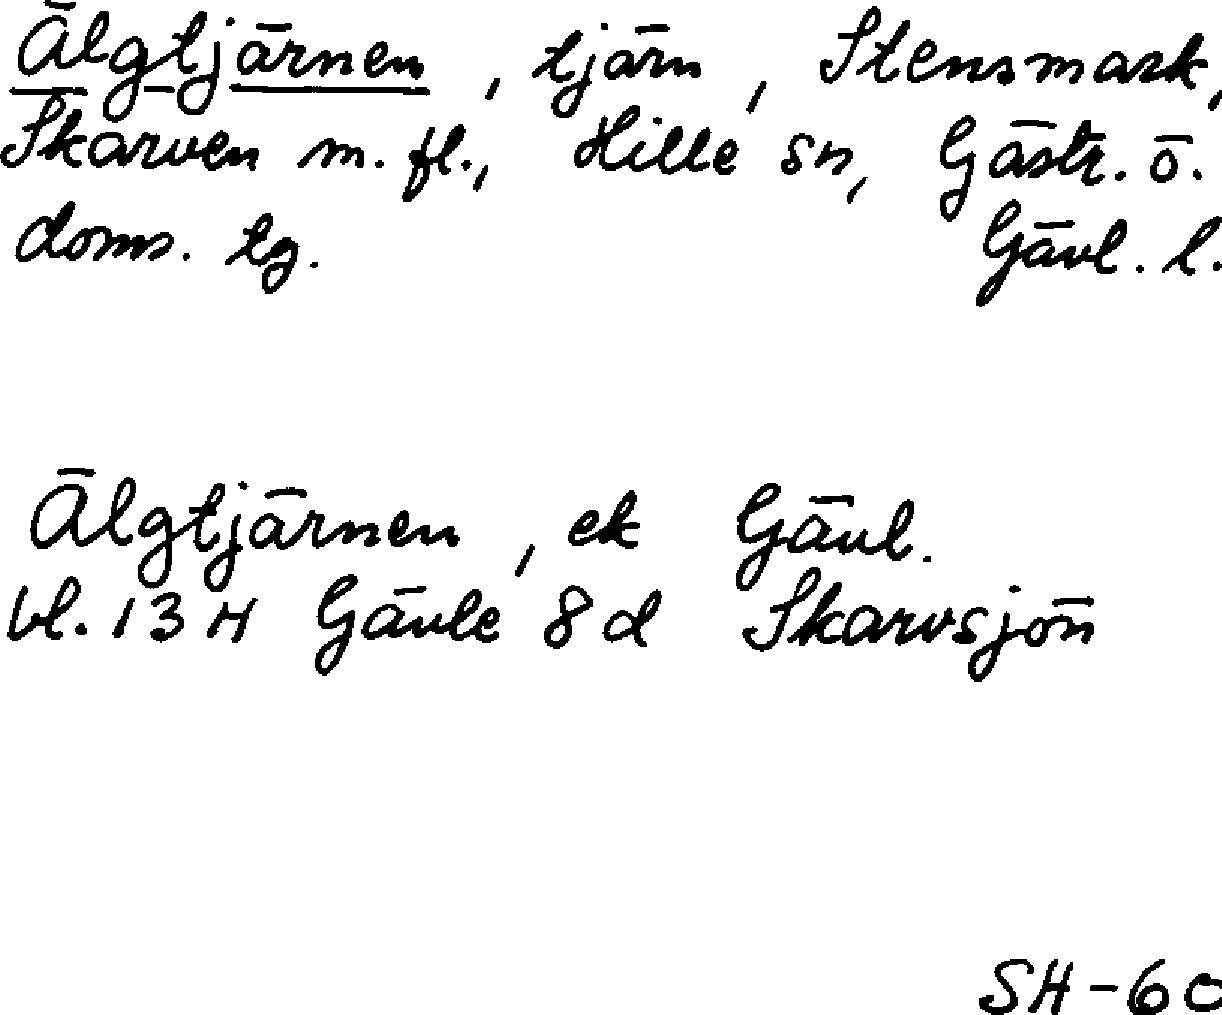 Älgtjärnen, tjärn, Stensmark,
Skarven m. fl., Hille sn, Gästr. ö.
doms. tg. Gävl. l.
Älgtjärnen, ek Gävl.
bl. 13 H Gävle 8 d Skarvsjön
SH-60